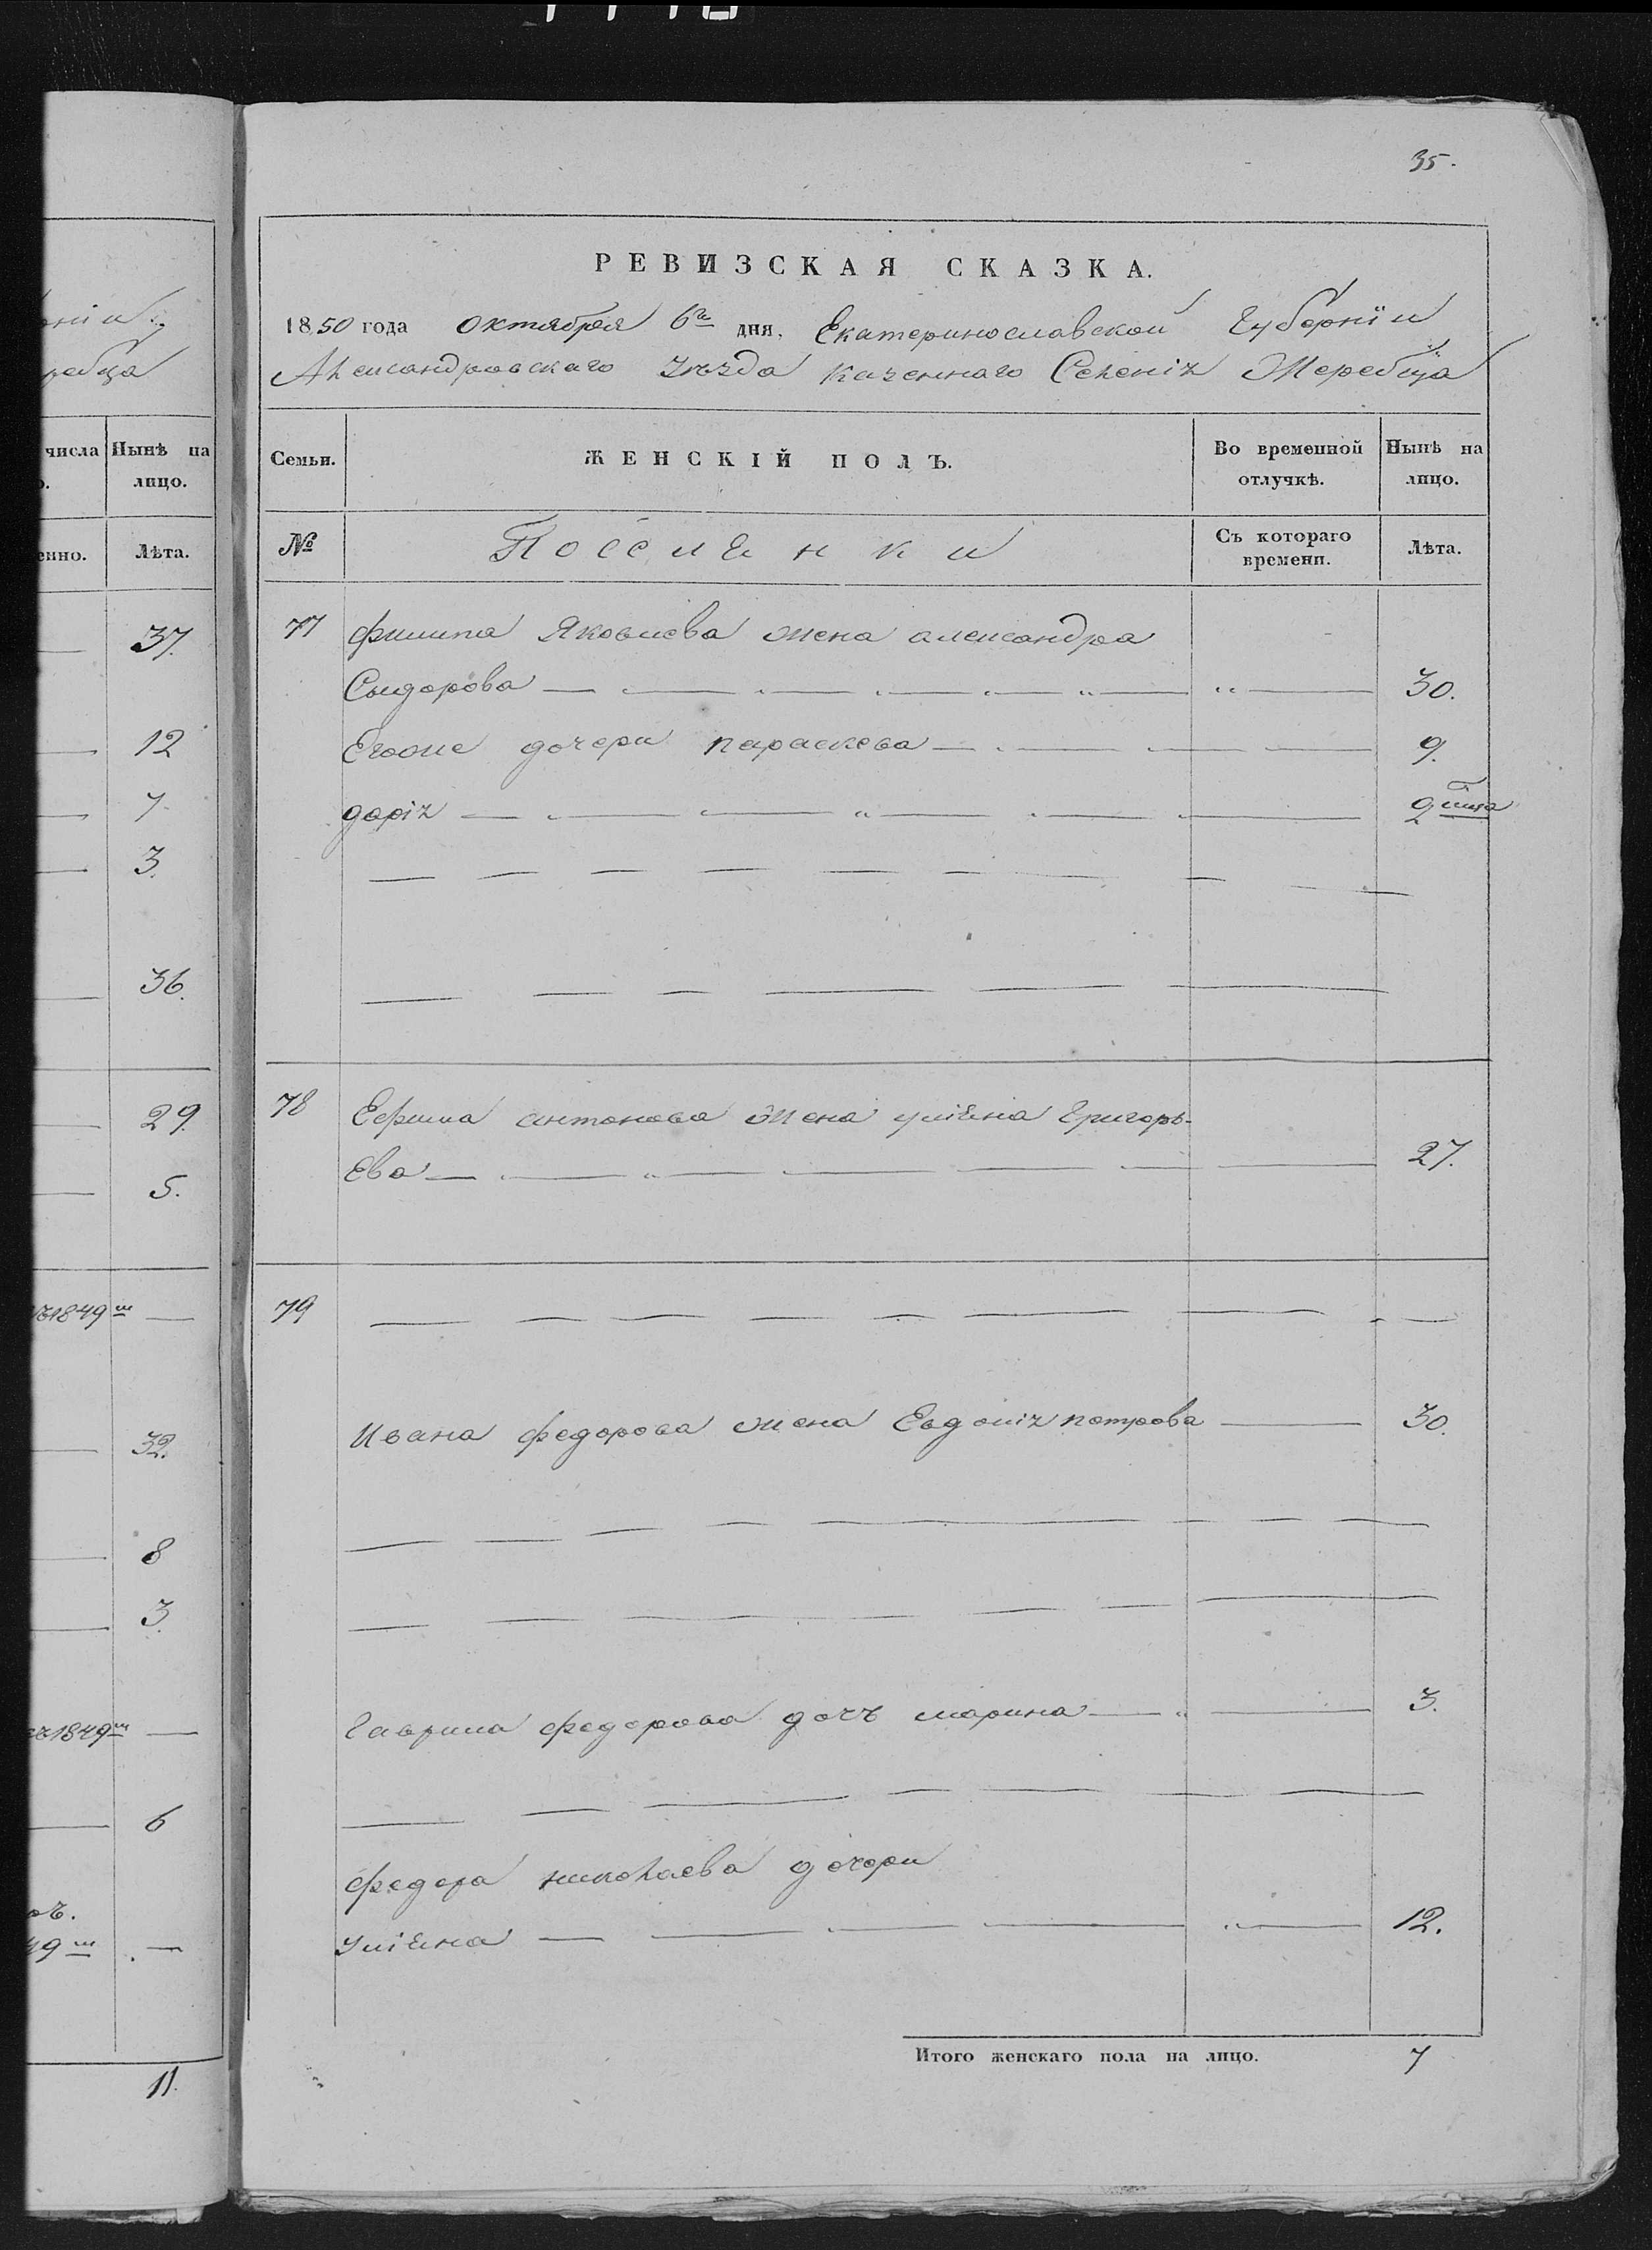 рніи
ребца
числа Нынѣ на
лицо.
енно. Лѣта.
37.
12
7.
3.
36.
29.
5.
1849 го
32.
8
3.
1849 го
6
11.
35.
РЕВИЗСКАЯ СКАЗКА.
1850 года октября 6го дня, Екатеринославской Губерніи
Александровскаго уѣзда казеннаго Селенія Жеребца
Семьи. ЖЕНСКІЙ ПОЛЪ. Во временной отлучкѣ. Нынѣ на лицо.
№ Поселенки Съ котораго времени. Лѣта.
77 филипа Яковлева жена александра
Сыдорова 30.
Егоже дочери параскева 9.
дарія 2
78 Ефима антонова жена улiяна Григорь-
Ева 27.
79
Ивана федорова жена Евдокія петрова 30.
Гаврила федорова дочъ марина 3.
федора николаева дочери
улiяна 12.
Итого женскаго пола на лицо. 7